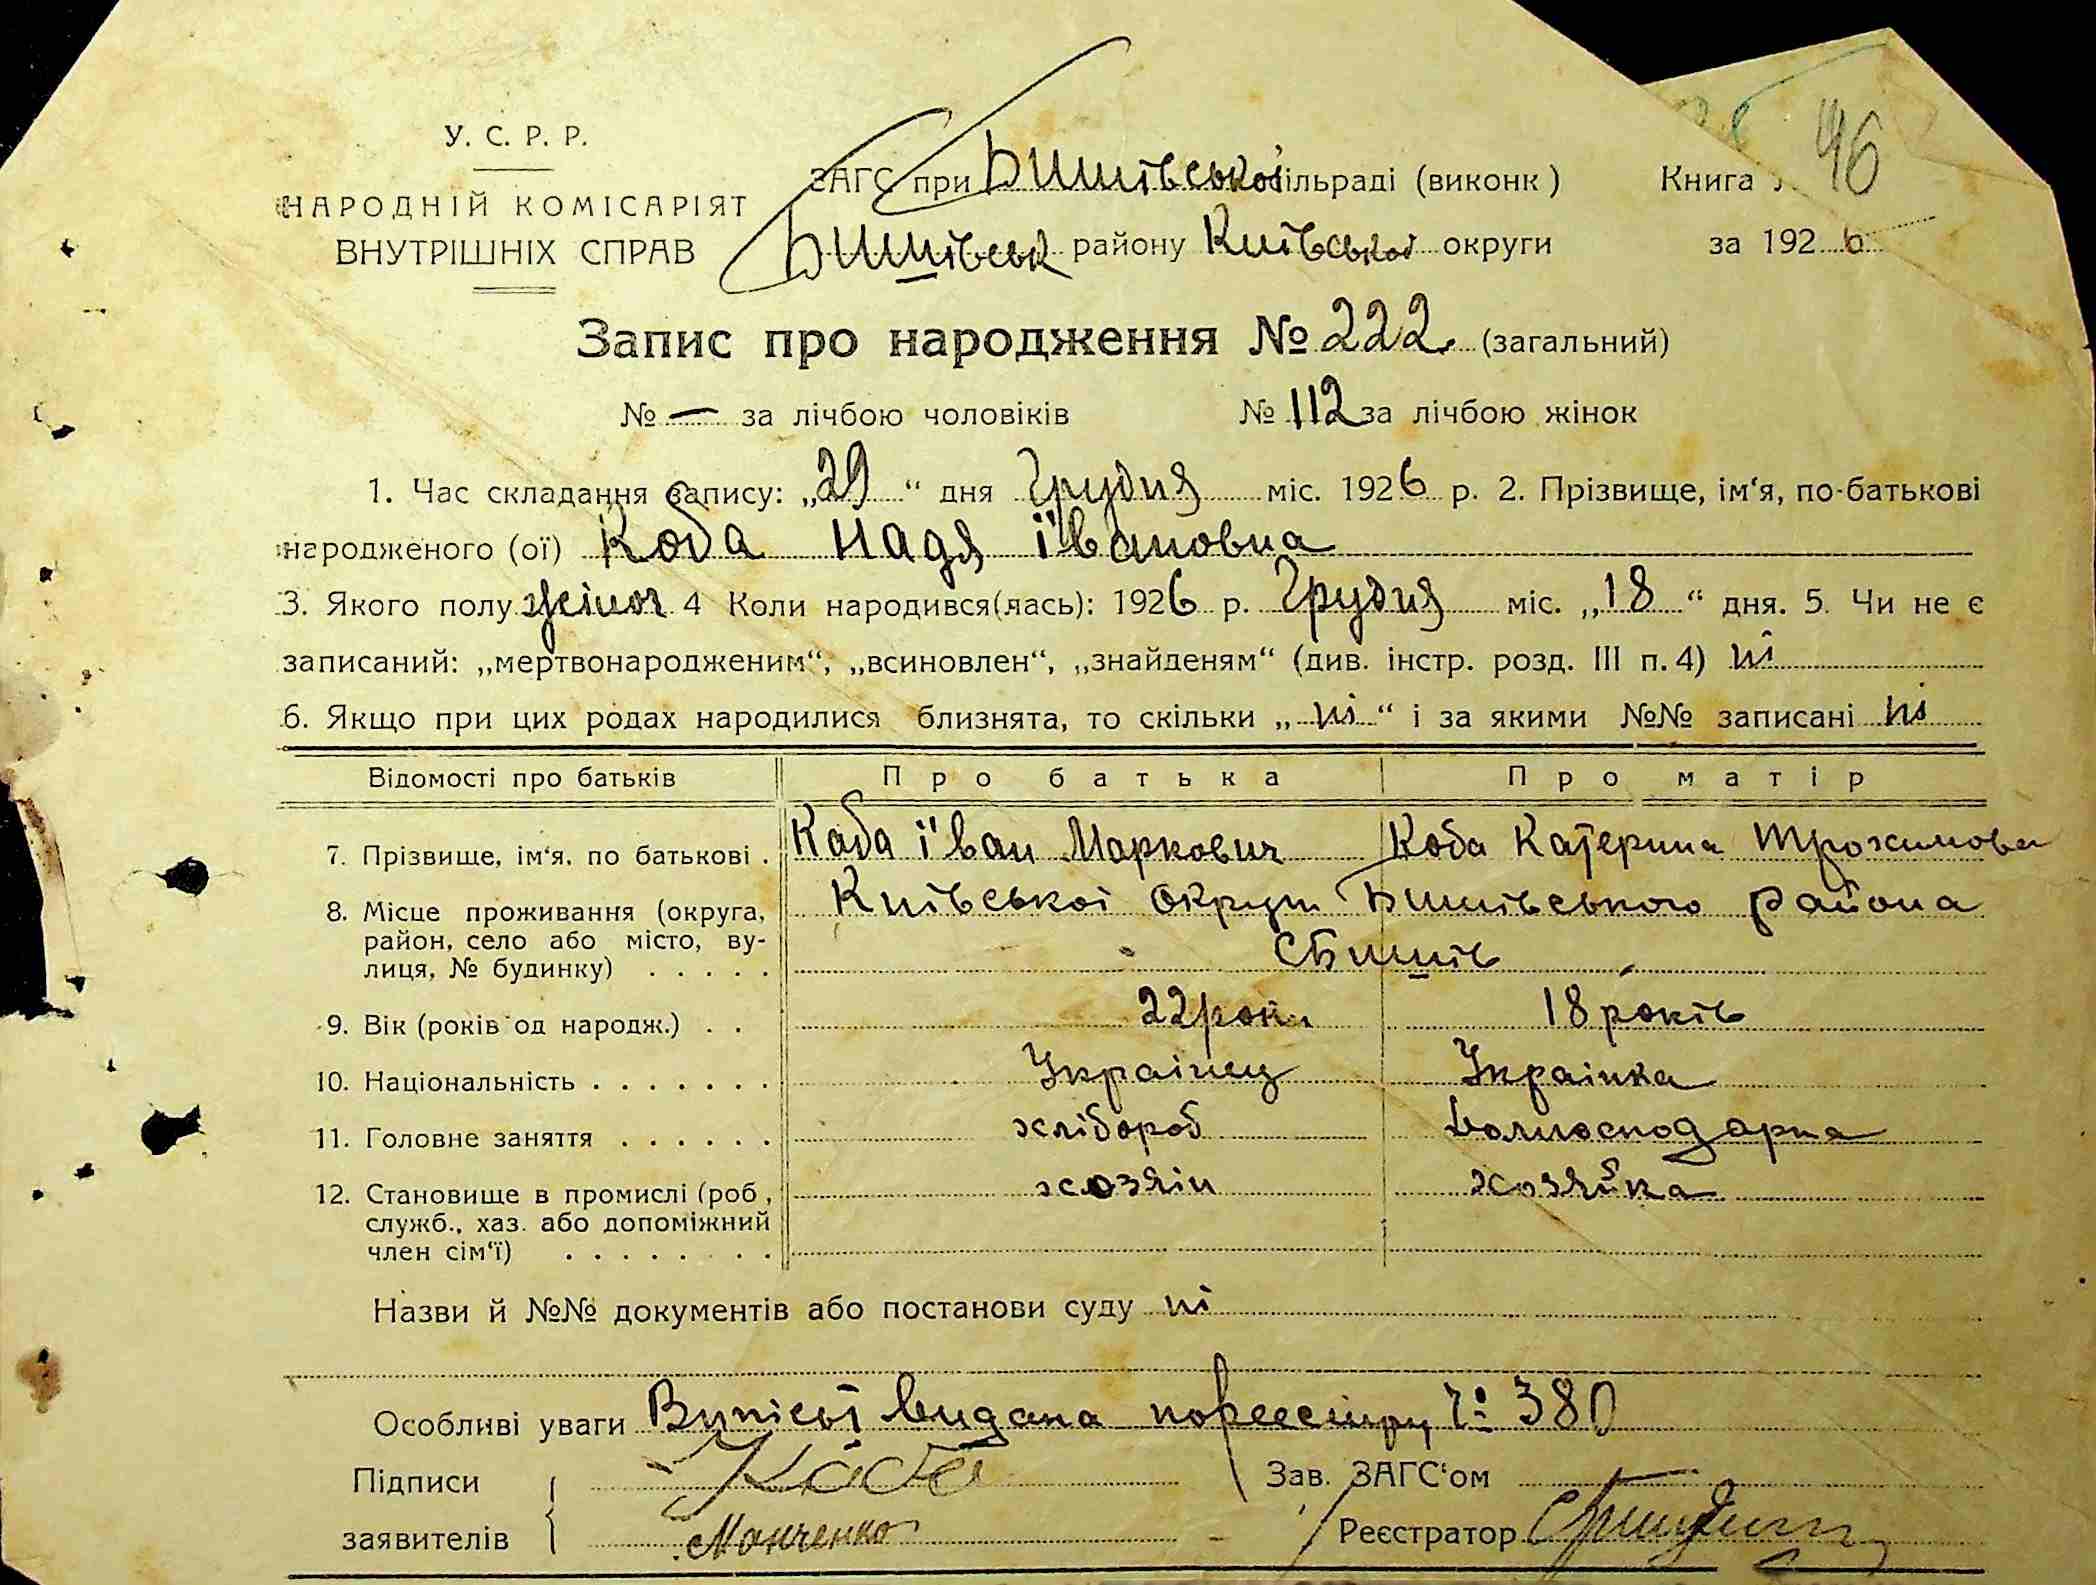 96
У. С. Р. Р.
НАРОДНІЙ КОМІСАРІЯТ
ВНУТРІШНІХ СПРАВ
ЗАГС при Бишівської сільраді (виконк)
Книга
Бишівськ району Київської округи
за 1926
Запис про народження № 222 (загальний)
№ — за лічбою чоловіків № 112 за лічбою жінок
1. Час складання запису: „29“ дня Грудня міс. 1926 р. 2. Прізвище, ім‘я, по-батькові
народженого (ої) Коба Надя Івановна
3. Якого полу жіноч 4 Коли народився(лась): 1926 р. Грудня міс. „18“ дня. 5. Чи не є
записаний: „мертвонародженим“, „всиновлен“, „знайденям“ (див. інстр. розд. III п. 4) ні
6. Якщо при цих родах народилися близнята, то скільки „ні“ і за якими №№ записані ні
Відомості про батьків Про батька Про матір
7. Прізвище, ім‘я, по батькові . Коба Іван Маркович Коба Катерина Трохимовна
8. Місце проживання (округа, район, село або місто, вулиця, № будинку) . . . . . Київської Округи Бишівського района
с Бишів
9. Вік (років од народж.) . . 22 роки 18 років
10. Національність . . . . . . . Украінец Украінка
11. Головне заняття . . . . . . хлібороб домогосподарка
12. Становище в промислі (роб, служб., хаз. або допоміжний член сім‘ї) . . . . . . . . хозяін хозяйка
Назви й №№ документів або постанови суду ні
Особливі уваги видана по реестру № 380
Підписи заявителів
Коба
Манченко
Зав. ЗАГС‘ом
Реєстратор